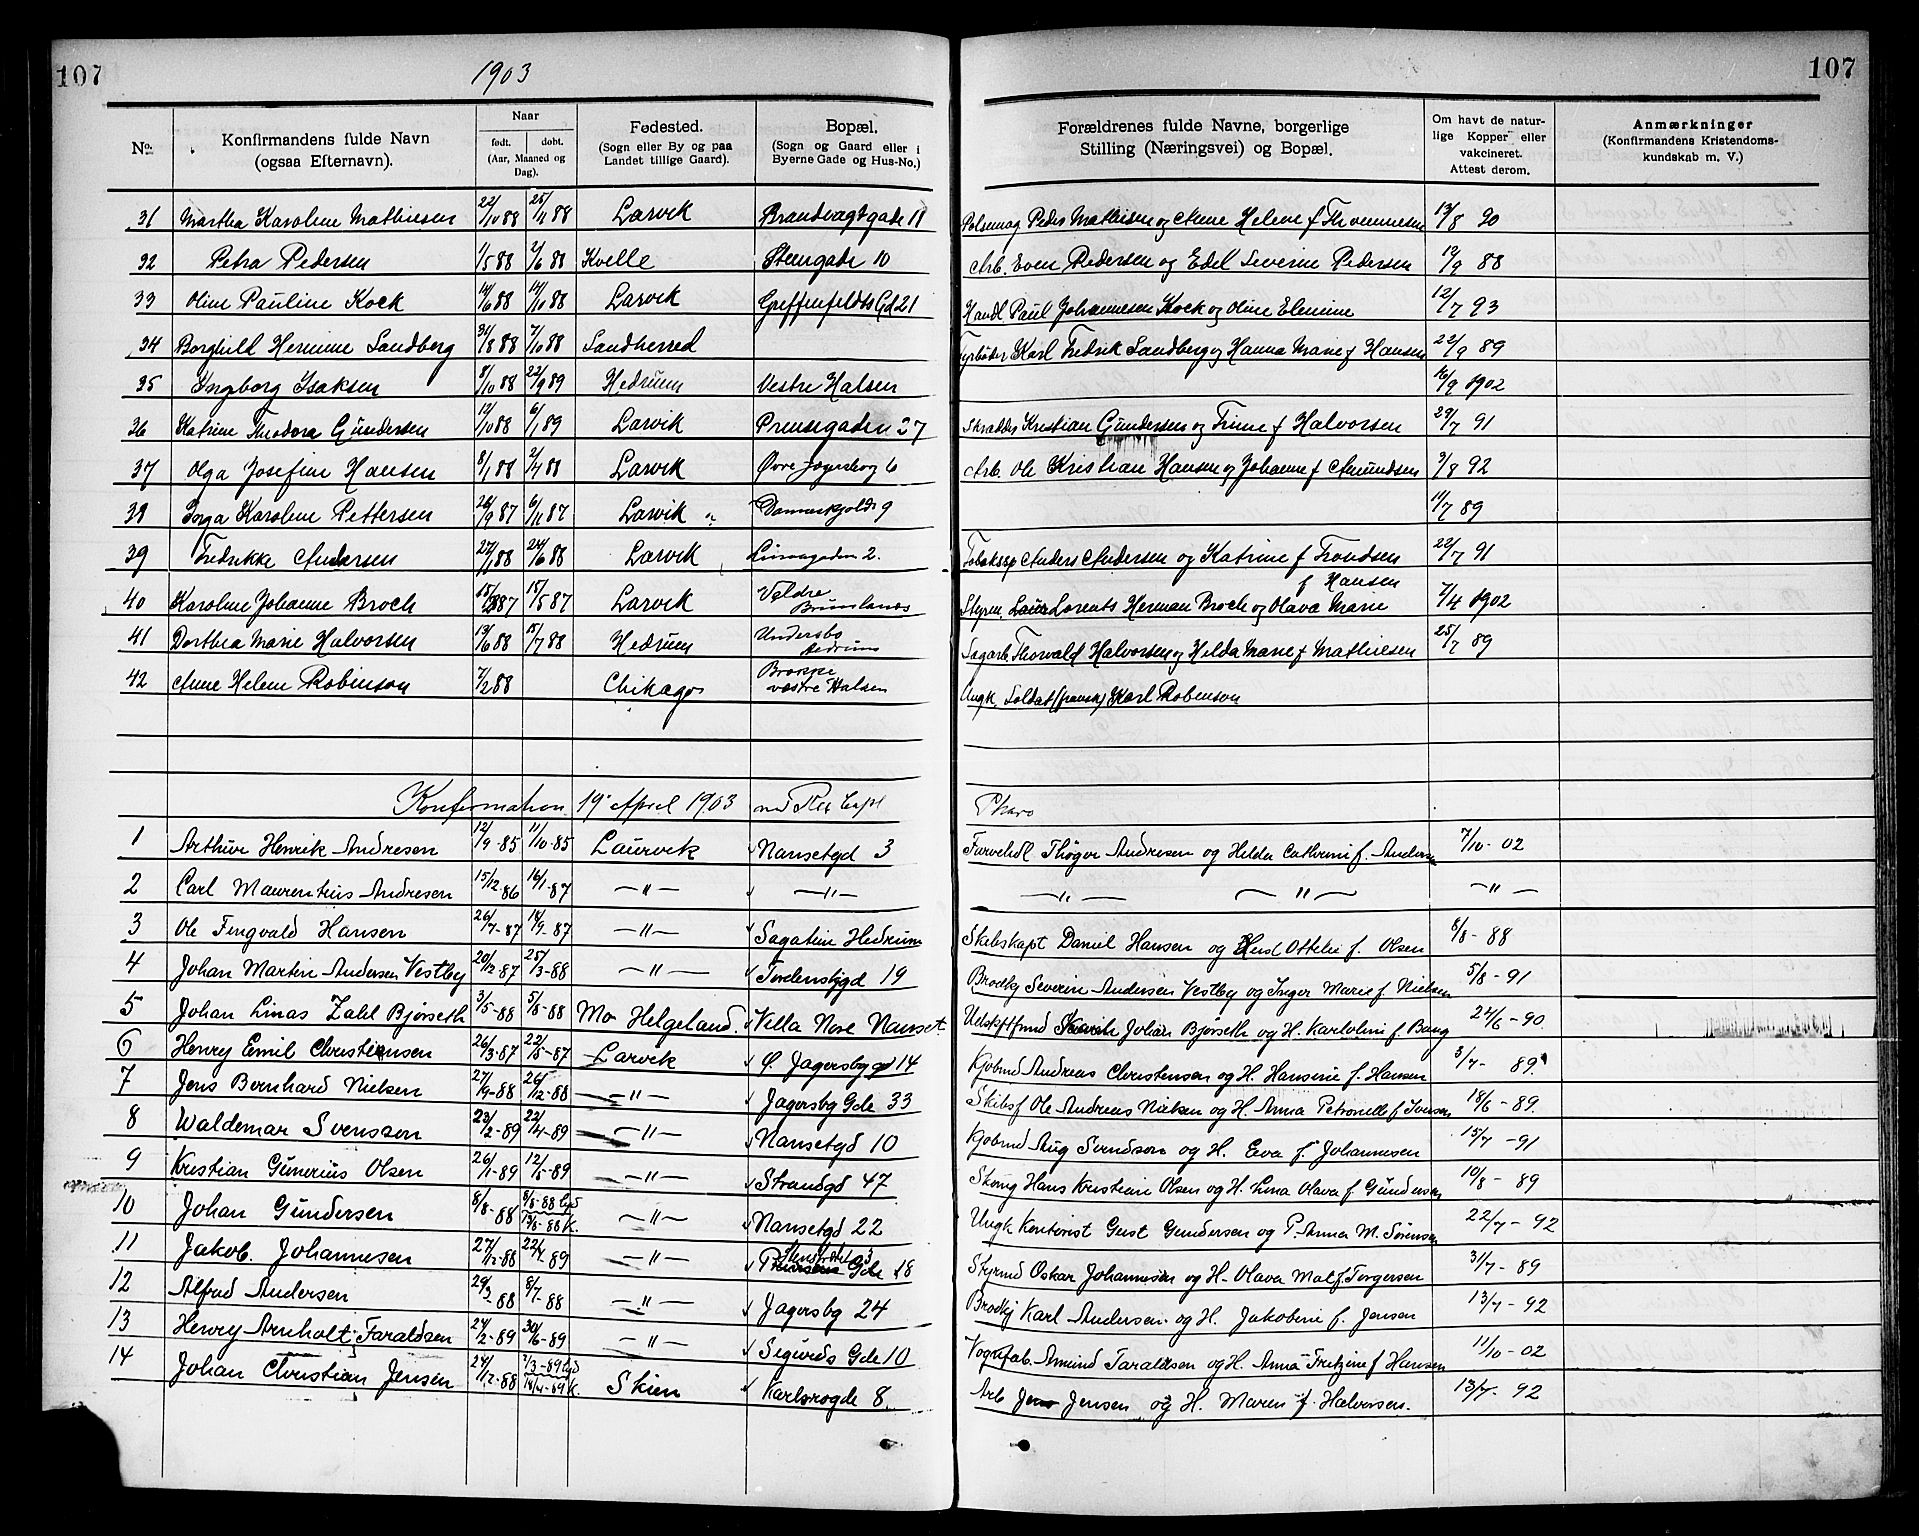 107
1903
107
No.
Konfirmandens fulde Navn (ogsaa Efternavn).
Naar
født. dobt.
(Aar, Maaned og Dag).
Fødested. (Sogn eller By og paa Landet tillige Gaard).
Bopæl. (Sogn og Gaard eller i Byerne Gade og Hus-No.)
Forældrenes fulde Navne, borgerlige Stilling (Næringsvei) og Bopæl.
Om havt de naturlige Kopper eller vakcineret. Attest derom.
Anmærkninger (Konfirmandens Kristendomskundskab m. V.)
31 Martha Karoline Mathiesen 22/10 88 25/11 88 Larvik Brandvagtgade 11 Peder Mathisen og Anne Helene f. 13/8 90
32 Petra Pedersen 1/5 88 2/6 88 Kvelle Steengade 10 Arb. Even Pedersen og Edel Severine Pedersen 19/9 88
33 Oline Pauline Kock 14/6 88 14/10 88 Larvik Greffenfeldts Gd 21 Handl Paul Johannesen Kock og Oline Elenine 12/7 93
34 Borghild Hermine Sandberg 31/8 88 7/10 88 Sandherred Fyrbøder Karl Fredrik Sandberg og Hanna Marie f Hansen 22/9 89
35 Ingeborg Isaksen 8/10 88 22/9 89 Hedrum Vestre Halsen 16/9 1902
36 Katrine Theodora Gundersen 12/10 88 6/1 89 Larvik Prinsegaden 27 Skrædder Kristian Gundersen og Trine f Halvorsen 29/7 91
37 Olga Josefine Hansen 8/1 88 2/4 88 Larvik Øvre Jegersborg 6 Arb. Ole Kristian Hansen og Johanne f Amundsen 9/8 92
38 Inga Karoline Pettersen 26/9 87 6/11 87 Larvik Danneskjolds 9 11/7 89
39 Fredrikke Andersen 27/1 88 24/6 88 Larvik Linaagaden 2. Tobakssp Anders Andersen og Katrine f Trondsen 22/7 91
40 Karoline Johanne Broch 87 15/5 87 Larvik Veldre Brunlanes Styrm. Lorents Herman Broch og Olava Marie f Hansen 7/4 1902
41 Dorthea Marie Halvorsen 13/6 88 15/7 88 Hedrum Undersbo Hedrum Sagarb. Thorvald Halvorsen og Hilda Marie f Mathiesen 25/7 89
42 Anne Helene Robinson 7/2 88 Chikago Brokke væstre Halsen Ungk. Soldat (fransk) Karl Robenson
Konfirmation 19de April 1903 ved Res Capl Tharo
1 Arthur Henrik Andresen 12/9-85 11/10-85 Laurvik Nansetgd 3 Farvehdl Thøger Andresen og Hilda Cathrine f. Andersen 7/10-02
2 Carl Maurentius Andresen 15/12-86 16/1-87 —"— —"— —"— —"— —"—
3 Ole Fingvald Hansen 26/7-87 18/9-87 —"— Sagatun Hedrum Skibskapt Daniel Hansen og Ottelie f. Olsen 8/8-88
4 Johan Martin Andersen Vestby 20/12-87 25/3-88 —"— Tordenskjgd 19 Brødkj Severin Andersen Vestby og Inger Marie f. Nielsen 5/8-91
5 Johan Linas Zahl Bjørseth 3/5-88 5/8-88 Mo Helgeland. Villa Nore Nanset Udskftfmd Johan Bjørseth og H. Karoline f. Bang 24/6-90
6 Henry Emil Christensen 26/3-87 22/5-87 Larvik Ø. Jagersbyg 14 Kjøbmd Andreas Christensen og H. Hansine f. Hansen 3/7-89
7 Jens Bernhard Nielsen 27/9-88 26/12-88 —"— Jagersbg Gde 33 Skibsf Ole Andreas Nielsen og H. Anna Petronelle f Iversen 18/6-89
8 Waldemar Svensson 23/2-89 22/4-89 —"— Nansetgd 10 Kjøbmd Aug Svendson og H. Eva f. Johannesen 15/7-91
9 Kristian Gunerius Olsen 26/1-89 12/5-89 —"— Strandgd 47 Skomg Hans Kristian Olsen og H. Lina Olava f. Gundersen 10/8-89
10 Johan Gundersen 8/8-88 8/8-88 Gd 13/8-88 K. —"— Nansetgd 22 Ungk Kontorist Gust Gundersen og P. Anna M. Sørensen 22/7-92
11 Jakob. Johannesen 27/12-88 22/4 89 —"— Gde 18 Styrmd Oskar Johannesen og H. Olava Mal f Torgersen 31/7-89
12 Alfred Andersen 29/3-88 8/7-88 —"— Jagersbg 24 Brødkj Karl Andersen og H. Jakobine f. Jensen 13/7-92
13 Henry Arnholt Taraldsen 24/2-89 30/6-89 —"— Sigurds Gde 10 Vognfab. Amund Taraldsen og H. Anna Fritzine f Hansen 11/10-02
14 Johan Christian Jensen 24/12-88 1/3-89 Gd 14/4-89 K. Skien Karlsrogde 8. Arb Jens Jensen og H. Maren f. Halvorsen. 13/7-92